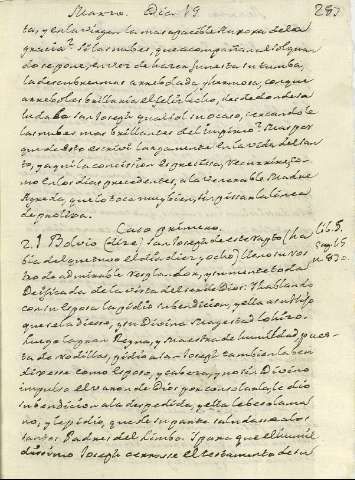 Marzo. Dia 19
283
tas, y en la Virgen la mas apacible Aurora de la
gracia? Si las nubes, que acompañan al sol quan
do se pone, en vez de hacer funesta su tumba,
la descubren mas arrebolada y hermosa, con que
arreboles brillaria el feliz lecho, desde donde sa
ludaba San Joseph qual sol in ocaso, cercandole
las nubes mas brillantes del Empireo? Mas por
que de esto escrivì largamente en la vida del San
to, y aqui la concision es precissa, recurrire, co
mo en los dias precedentes, a la Venerable Madre
Agreda, que lo toca muy bien, sin pissar la linea
de prolixa.
Casso primero.
2. Bolvio (dize) San Joseph de este rapto (ha
bia del que tuvo el dia diez y ocho) lleno su ros
tro de admirable resplandor, y su mente toda
Deificada de la vista del ser de Dios. Y hablando
con su Esposa la pidio su bendicion, y ella a su Hijo
que se la diesse, y su Divina Magestad lo hizo.
Luego la gran Reyna, y Maestra de humildad pues
ta de rodillas, pidio a San Joseph tambien la ben
dixesse como Esposo, y cabeza, y no sin Divino
impulso el varon de Dios por consolarla, le dio
su bendicion a la despedida, y ella le beso la ma
no, y le pidio, que de su parte saludasse a los
Santos Padres del Limbo. Y para que el humil
dissimo Joseph cerrasse el testamento de su
lib. 5.
cap. 15
n. 872.